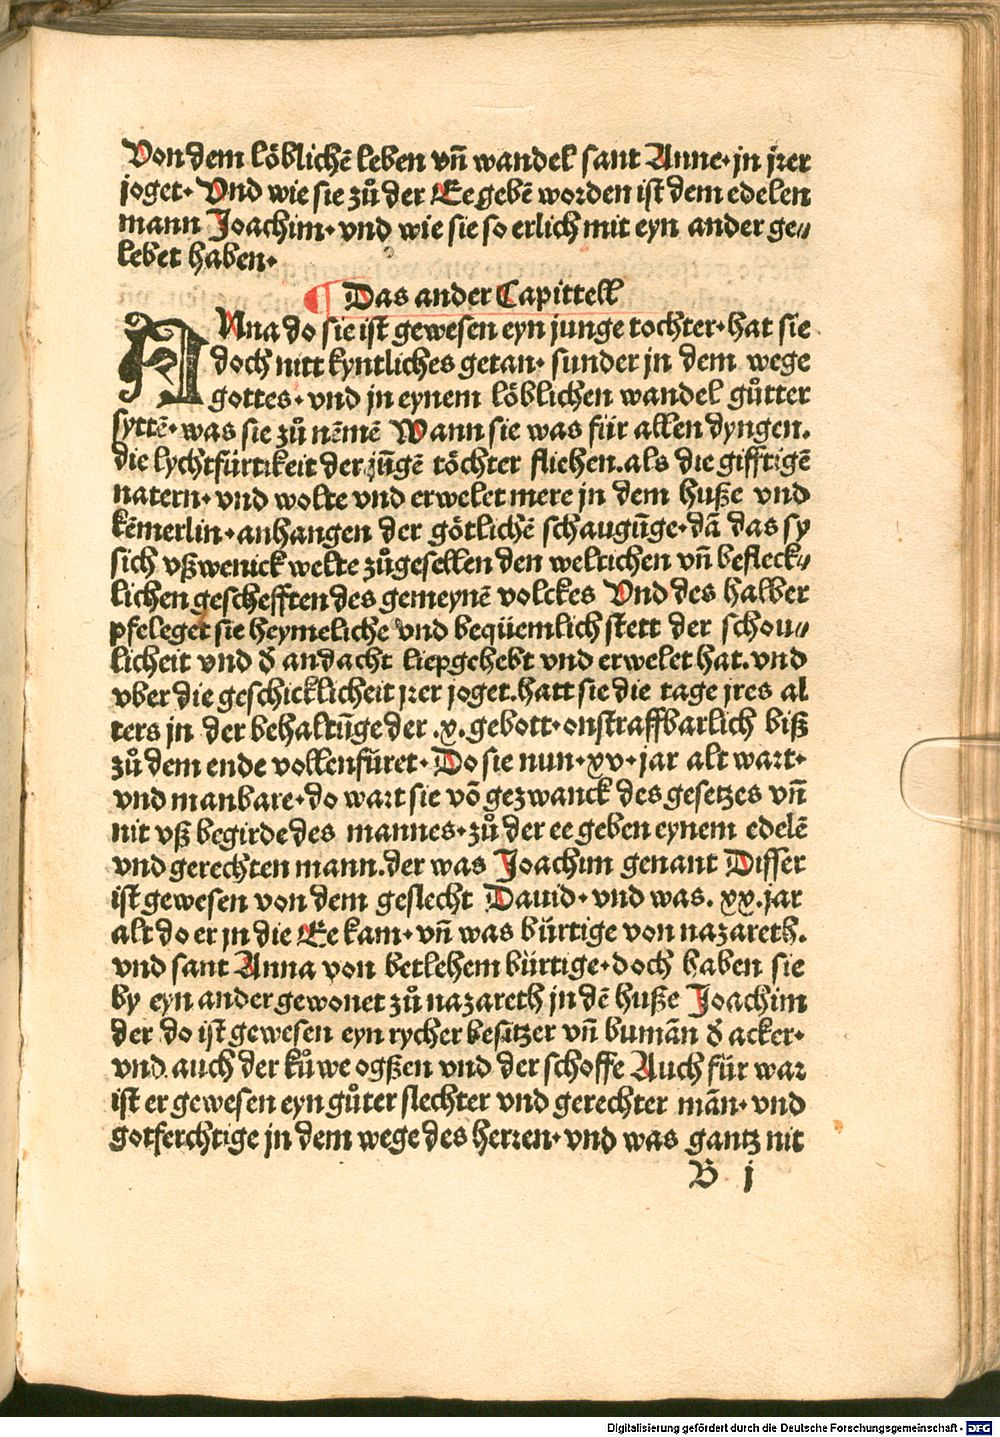 Von dem löblichē leben vn̄ wandel sant Anne· jn jrer
joget· Vnd wie sie zů der Ee gebē worden ist dem edelen
mann Joachim· vnd wie sie so erlich mit eyn ander ge⸗
lebet haben·
¶ Das ander Capittell
ANna do sie ist gewesen eyn junge tochter· hat sie
doch nitt kyntliches getan· sunder jn dem wege
gottes· vnd jn eynem löblichen wandel gůtter
syttē· was sie zů nēmē Wann sie was für allen dyngen.
die lychtfürtikeit der jūgē töchter fliehen. als die gifftigē
natern· vnd wolte vnd erwelet mere jn dem huße vnd
kēmerlin· anhangen der götlichē schaugūge· dā das sy
sich vßwenick welte zůgesellen den weltichen vn̄ befleck⸗
lichen geschefften des gemeynē volckes Vnd des halber
pfeleget sie heymeliche vnd beqüemlich stett der schou⸗
licheit vnd đ andacht liepgehebt vnd erwelet hat. vnd
vber die geschicklicheit jrer joget. hatt sie die tage jres al
ters jn der behaltūge der .x. gebott· onstraffbarlich biß
zů dem ende vollenfüret· Do sie nun· xv· jar alt wart·
vnd manbare· do wart sie vō gezwanck des gesetzes vn̄
nit vß begirde des mannes· zů der ee geben eynem edelē
vnd gerechten mann. der was Joachim genant Disser
ist gewesen von dem geslecht Dauid· vnd was. xx. jar
alt do er jn die Ee kam· vn̄ was bürtige von nazareth.
vnd sant Anna von betlehem bürtige· doch haben sie
by eyn ander gewonet zů nazareth jn dē huße Joachim
der do ist gewesen eyn rycher besitzer vn̄ bumān đ acker·
vnd auch der kůwe ogßen vnd der schoffe Auch für war
ist er gewesen eyn gůter slechter vnd gerechter mān· vnd
gotferchtige jn dem wege des herren· vnd was gantz nit
B j
Digitalisierung gefördert durch die Deutsche Forschungsgemeinschaft - DFG